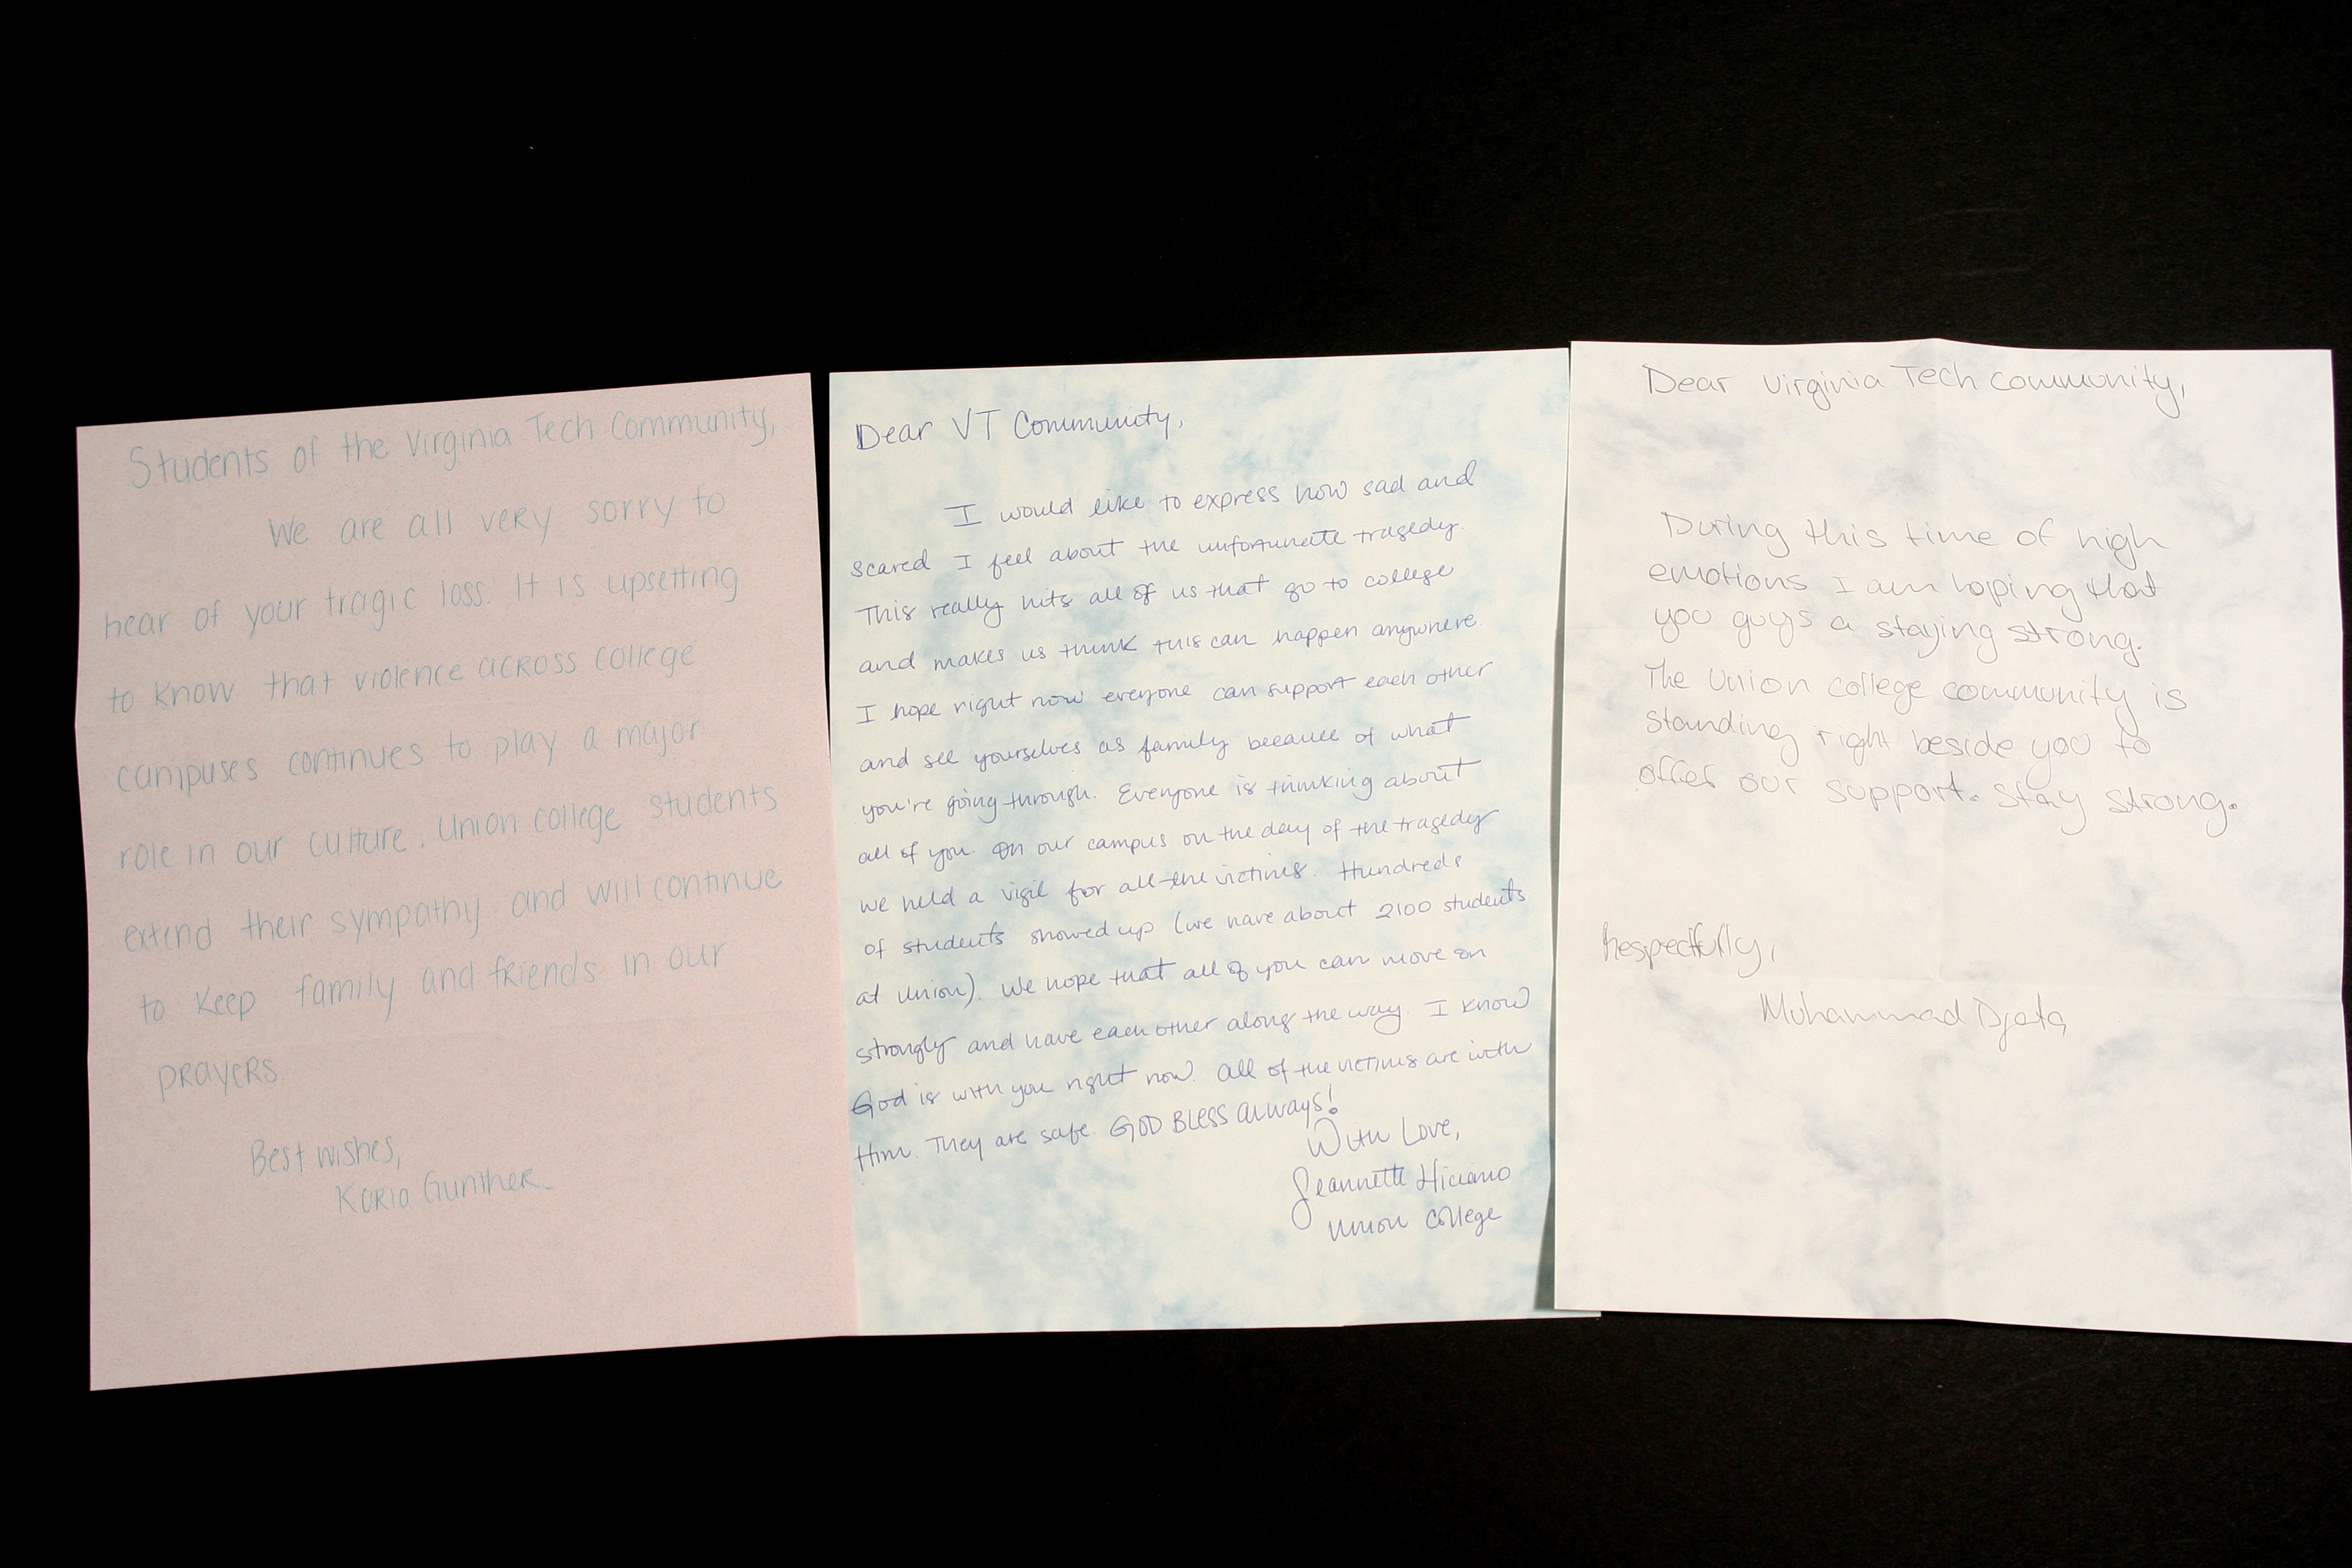 Students of the Virginia Tech Community,
We are all very sorry to
hear of your tragic loss. It is upsetting
to know that violence across college
campuses continues to play a major
role in our culture. Union college students
extend their sympathy and will continue
to keep family and friends in our
prayers.
Best wishes,
Karia Gunther
Dear VT Community,
I would like to express how sad and
scared I feel about the unfortunate tragedy.
This really hits all of us that go to college
and makes us think this can happen anywhere.
I hope right now everyone can support each other
and see yourselves as family because of what
you're going through. Everyone is thinking about
all of you. On our campus on the day of the tragedy
we held a vigil for all the victims. Hundreds
of students showed up (we have about 2100 students
at Union). We hope that all of you can move on
strongly and have each other along the way. I know
God is with you right now. All of the victims are with
Him. They are safe. GOD BLESS ALWAYS!
With Love,
Jeannette Hiciano
Union College
Dear Virginia Tech community,
During this time of high
emotions I am hoping that
you guys a staying strong.
The Union college community is
standing right beside you to
offer our support. Stay strong.
Respectfully,
Mohammad Djata